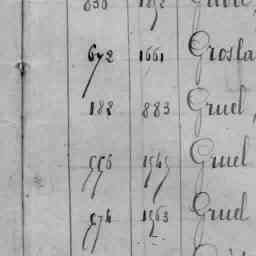 672 1661 Grosla
182 883 Gruel,
556 1545 Gruel
574 1563 Gruel